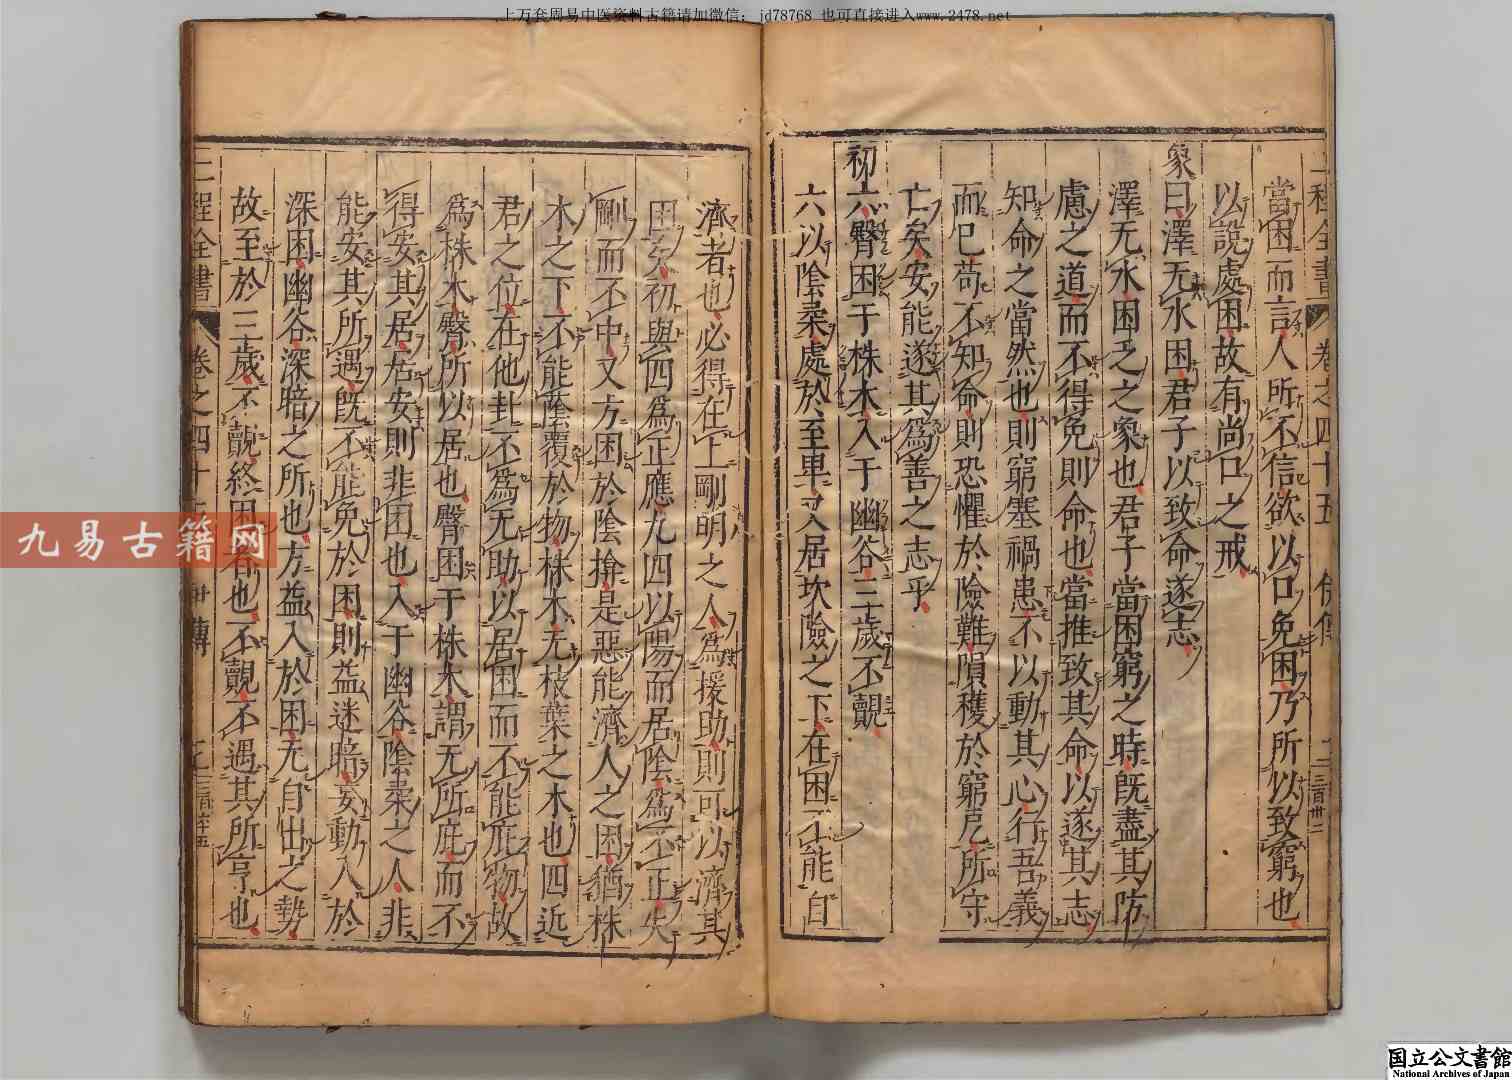 上万套周易中医资料古籍请加微信：jd78768 也可直接进入www.2478.net
二程全書 卷之四十五 傳
當困而言人所不信欲以口免困乃所以致窮也
以說處困故有尚口之戒
象曰澤无水困君子以致命遂志
澤无水困乏之象也君子當困窮之時既盡其防
慮之道而不得免則命也當推致其命以遂其志
知命之當然也則窮塞禍患不以動其心行吾義
而已苟不知命則恐懼於險難隕穫於窮戹所守
亡矣安能遂其爲善之志乎
初六臀困于株木入于幽谷三歲不覿
六以陰柔處於至卑又居坎險之下在困不能自
濟者也必得在上剛明之人爲援助則可以濟其
困矣初與四爲正應九四以陽而居陰爲不正失
剛而不中又方困於陰揜是惡能濟人之困猶株
木之下不能蔭覆於物株木无枝葉之木也四近
君之位在他卦不爲无助以居困而不能庇物故
爲株木臀所以居也臀困于株木謂无所庇而不
得安其居居安則非困也入于幽谷陰柔之人非
能安其所遇既不能免於困則益迷暗妄動入於
深困幽谷深暗之所也方益入於困无自出之勢
故至於三歲不覿終困者也不覿不遇其所亨也
二程全書 卷之四十 傳
九易古籍网
国立公文書館
National Archives of Japan